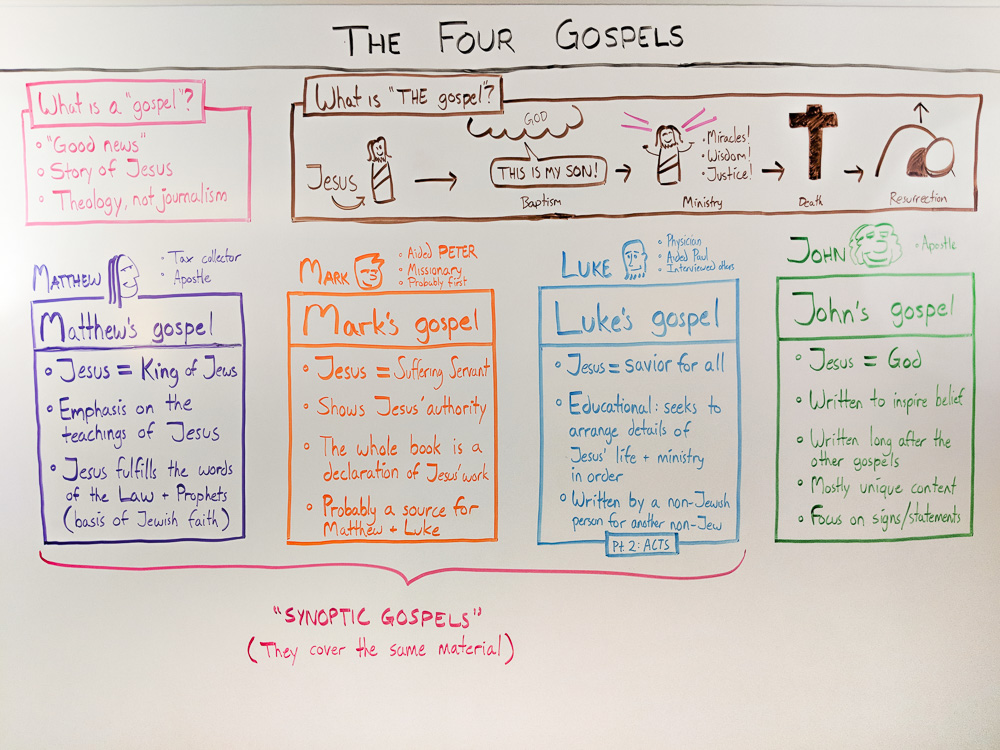 THE FOUR GOSPELS
What is a "gospel"?
• "Good news"
• Story of Jesus
• Theology, not journalism
What is "THE gospel"?
Jesus
GOD
THIS IS MY SON!
Baptism
• Miracles!
• Wisdom!
• Justice!
Ministry
Death
Resurrection
MATTHEW
• Tax collector
• Apostle
Matthew's gospel
• Jesus = King of Jews
• Emphasis on the
teachings of Jesus
• Jesus fulfills the words
of the Law + Prophets
(basis of Jewish faith)
MARK
• Aided PETER
• Missionary
• Probably first
Mark's gospel
• Jesus = Suffering Servant
• Shows Jesus' authority
• The whole book is a
declaration of Jesus' work
• Probably a source for
Matthew + Luke
LUKE
• Physician
• Aided Paul
• Interviewed others
Luke's gospel
• Jesus = savior for all
• Educational: seeks to
arrange details of
Jesus' life + ministry
in order
• Written by a non-Jewish
person for another non-Jew
Pt. 2: ACTS
JOHN
• Apostle
John's gospel
• Jesus = God
• Written to inspire belief
• Written long after the
other gospels
• Mostly unique content
• Focus on signs/statements
"SYNOPTIC GOSPELS"
(They cover the same material)